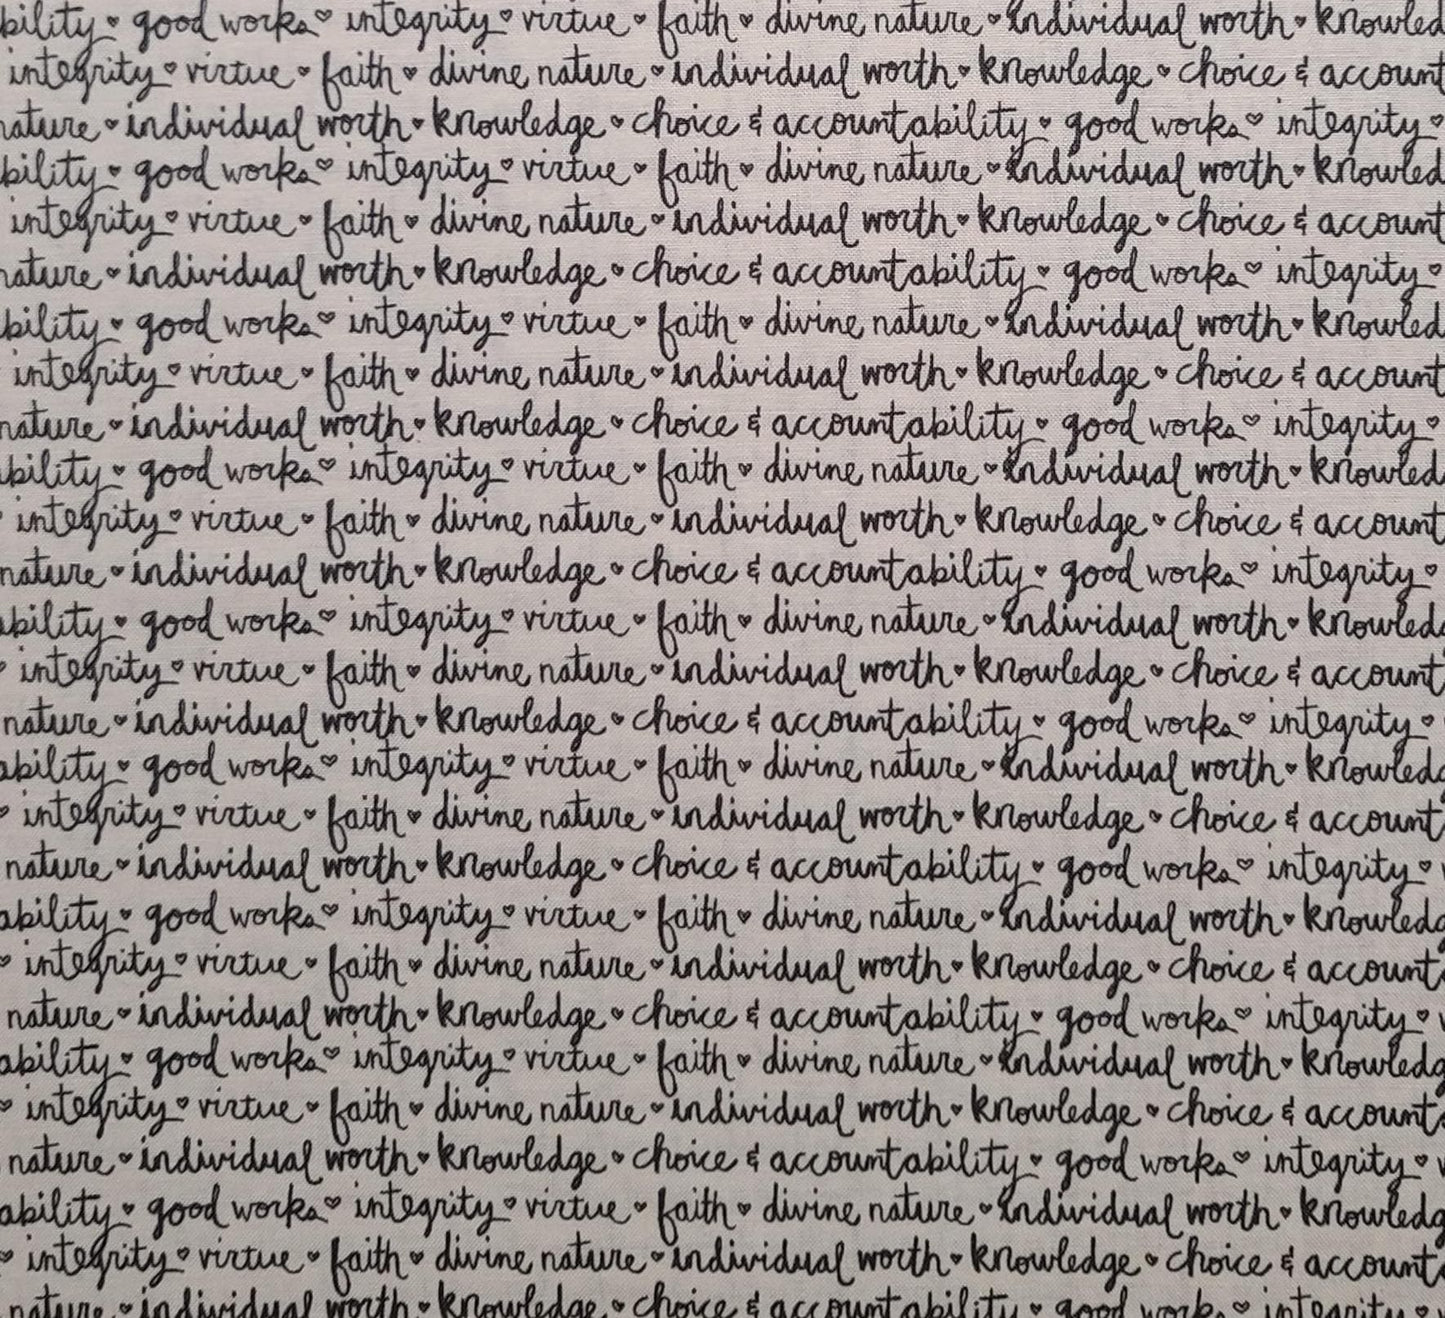 bility ♥ good works ♥ integrity ♥ virtue ♥ faith ♥ divine nature ♥ individual worth ♥ knowled
integrity ♥ virtue ♥ faith ♥ divine nature ♥ individual worth ♥ knowledge ♥ choice & account
nature ♥ individual worth ♥ knowledge ♥ choice & accountability ♥ good works ♥ integrity ♥
bility ♥ good works ♥ integrity ♥ virtue ♥ faith ♥ divine nature ♥ individual worth ♥ knowled
integrity ♥ virtue ♥ faith ♥ divine nature ♥ individual worth ♥ knowledge ♥ choice & account
nature ♥ individual worth ♥ knowledge ♥ choice & accountability ♥ good works ♥ integrity ♥
bility ♥ good works ♥ integrity ♥ virtue ♥ faith ♥ divine nature ♥ individual worth ♥ knowled
integrity ♥ virtue ♥ faith ♥ divine nature ♥ individual worth ♥ knowledge ♥ choice & account
nature ♥ individual worth ♥ knowledge ♥ choice & accountability ♥ good works ♥ integrity ♥
ability ♥ good works ♥ integrity ♥ virtue ♥ faith ♥ divine nature ♥ individual worth ♥ knowled
♥ integrity ♥ virtue ♥ faith ♥ divine nature ♥ individual worth ♥ knowledge ♥ choice & account
nature ♥ individual worth ♥ knowledge ♥ choice & accountability ♥ good works ♥ integrity ♥
ability ♥ good works ♥ integrity ♥ virtue ♥ faith ♥ divine nature ♥ individual worth ♥ knowled
♥ integrity ♥ virtue ♥ faith ♥ divine nature ♥ individual worth ♥ knowledge ♥ choice & account
nature ♥ individual worth ♥ knowledge ♥ choice & accountability ♥ good works ♥ integrity ♥
ability ♥ good works ♥ integrity ♥ virtue ♥ faith ♥ divine nature ♥ individual worth ♥ knowledg
♥ integrity ♥ virtue ♥ faith ♥ divine nature ♥ individual worth ♥ knowledge ♥ choice & account
nature ♥ individual worth ♥ knowledge ♥ choice & accountability ♥ good works ♥ integrity ♥
ability ♥ good works ♥ integrity ♥ virtue ♥ faith ♥ divine nature ♥ individual worth ♥ knowledg
♥ integrity ♥ virtue ♥ faith ♥ divine nature ♥ individual worth ♥ knowledge ♥ choice & account
nature ♥ individual worth ♥ knowledge ♥ choice & accountability ♥ good works ♥ integrity ♥
ability ♥ good works ♥ integrity ♥ virtue ♥ faith ♥ divine nature ♥ individual worth ♥ knowledg
♥ integrity ♥ virtue ♥ faith ♥ divine nature ♥ individual worth ♥ knowledge ♥ choice & account
nature ♥ individual worth ♥ knowledge ♥ choice & accountability ♥ good works ♥ integrity ♥
ability ♥ good works ♥ integrity ♥ virtue ♥ faith ♥ divine nature ♥ individual worth ♥ knowledg
♥ integrity ♥ virtue ♥ faith ♥ divine nature ♥ individual worth ♥ knowledge ♥ choice & account
nature ♥ individual worth ♥ knowledge ♥ choice & accountability ♥ good works ♥ integrity ♥